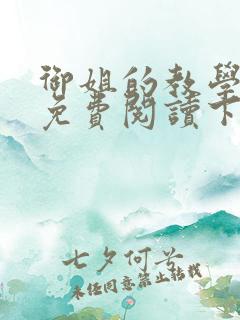 御姐的教學
免費閱讀下
七夕何兮
未经同意禁止转载